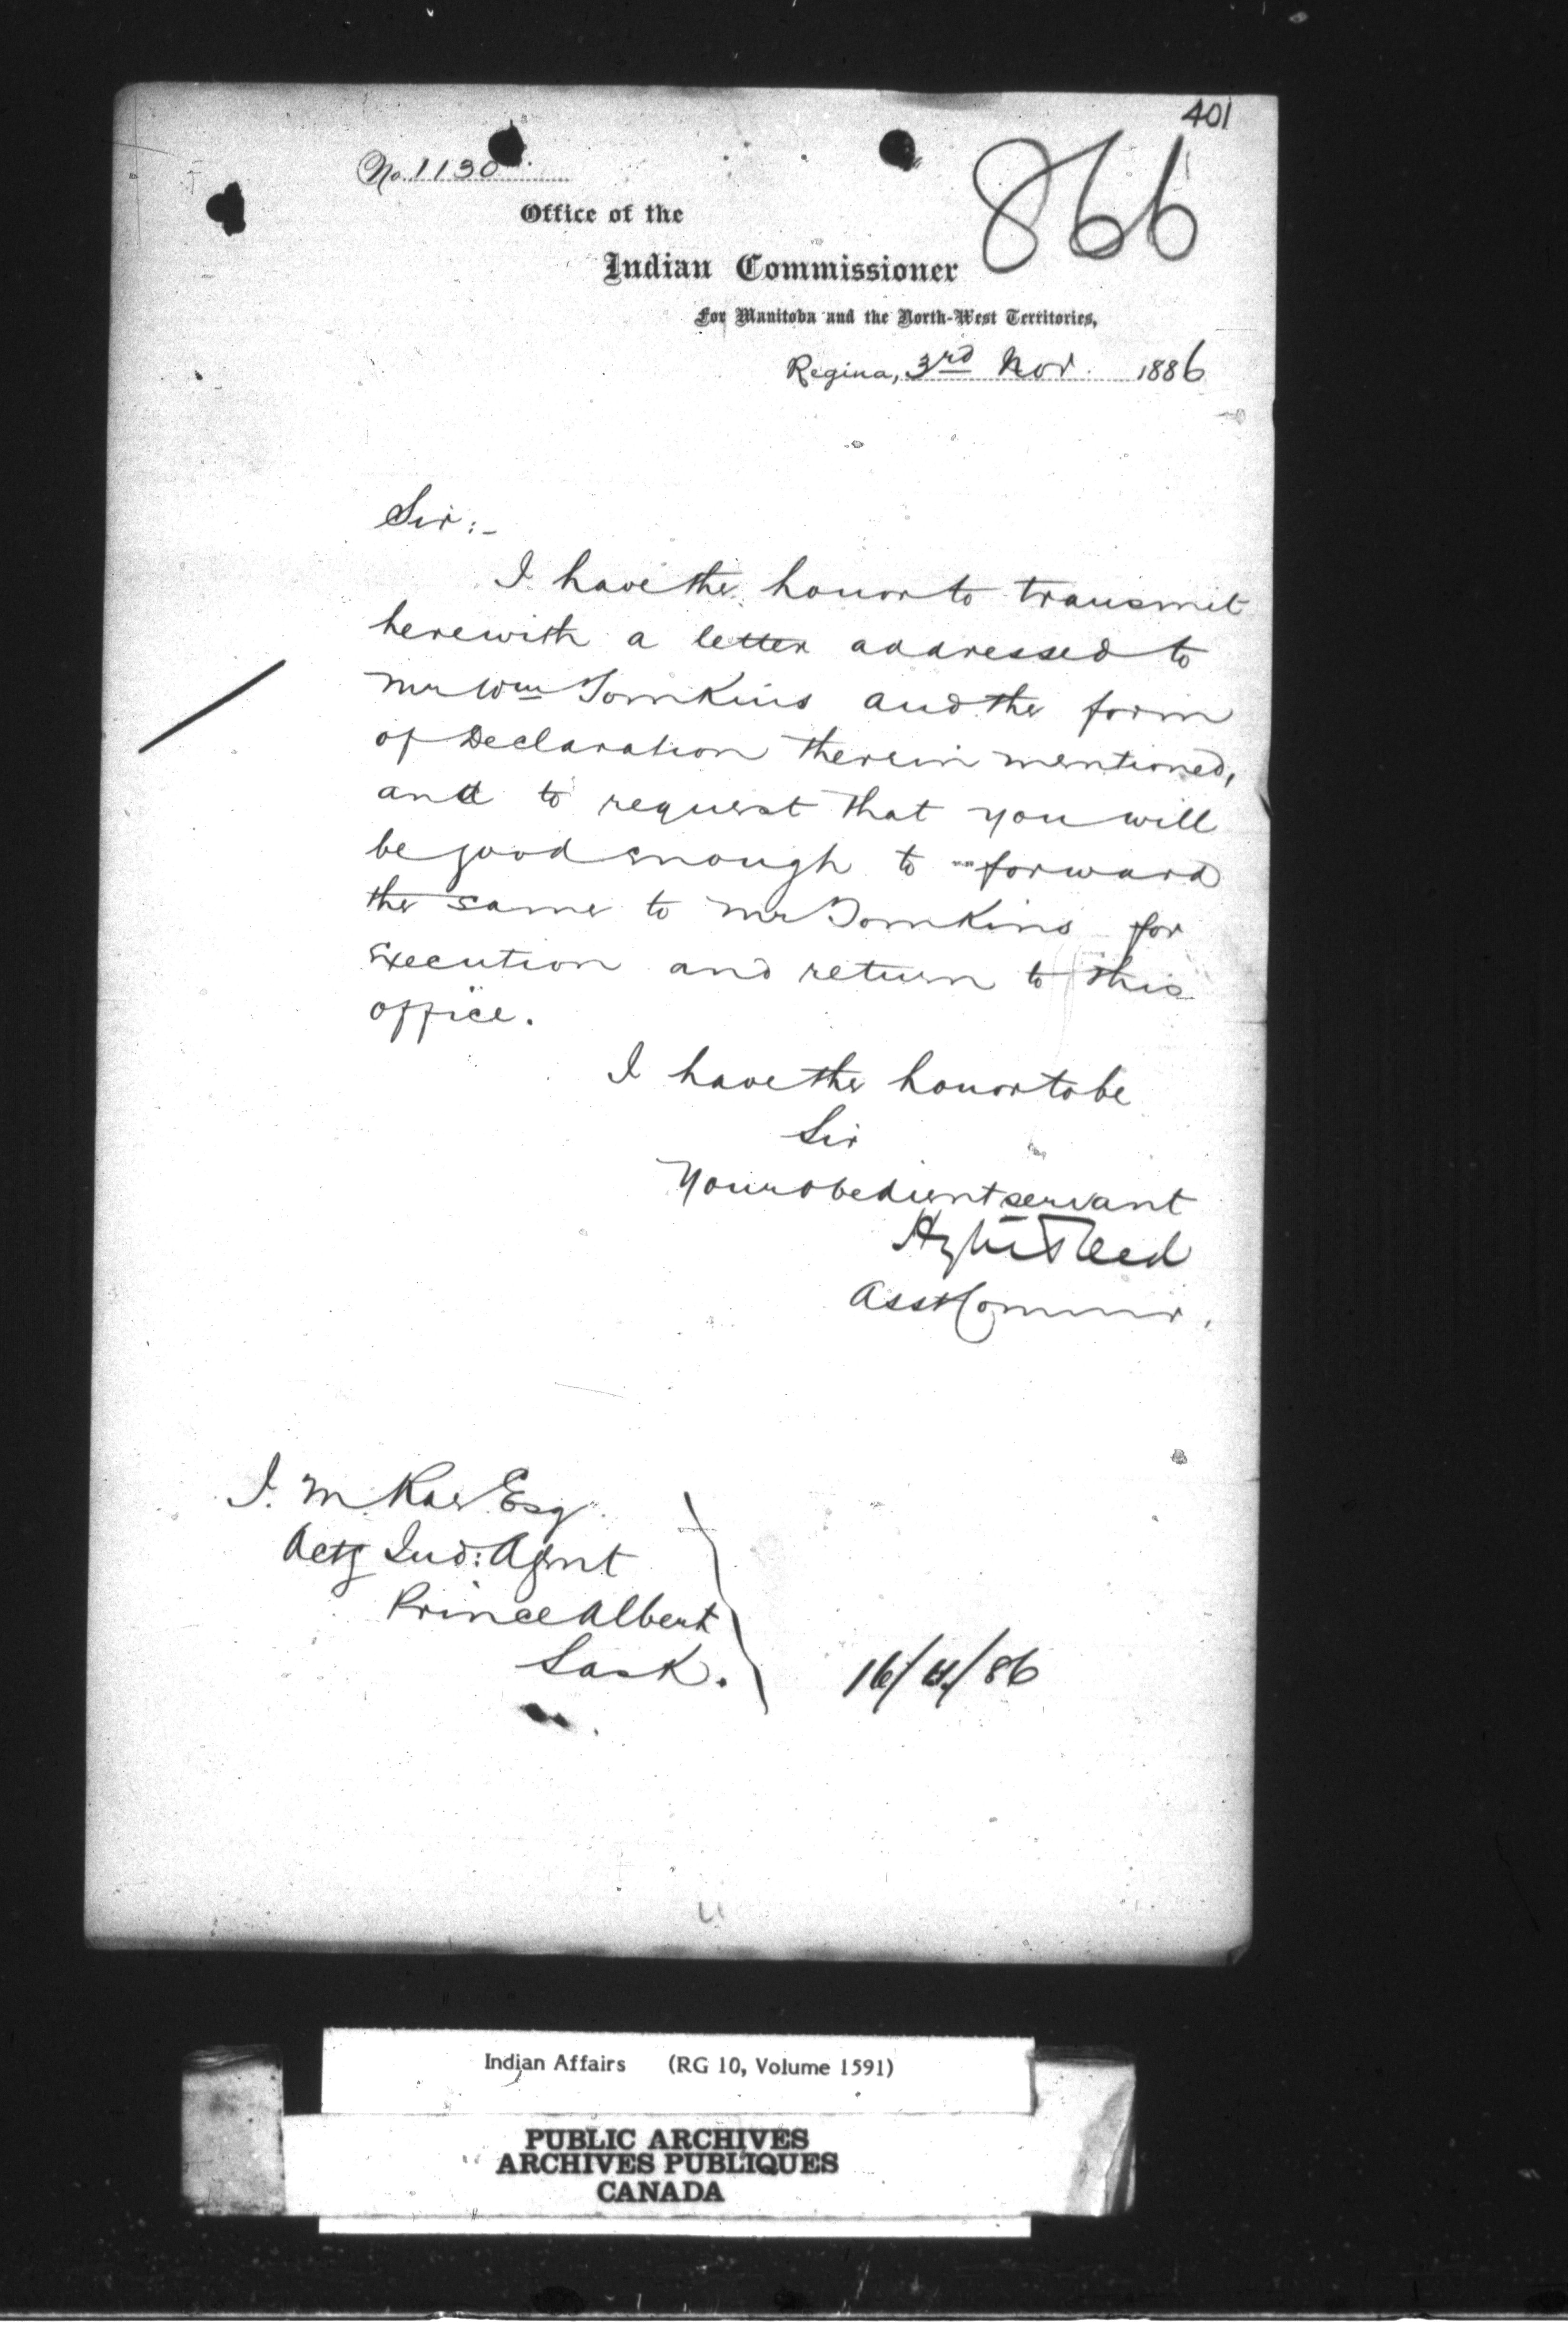 401
No. 1130
866
Office of the
Indian Commissioner
For Manitoba and the North-West Territories,
Regina, 3rd Nov. 1886
Sir:-
I have the honor to transmit
herewith a letter addressed to
Mr Wm TomKins and the form
of Declaration therein mentioned,
and to request that you will
be good enough to forward
the same to Mr TomKins for
execution and return to this
office.
I have the honor to be
Sir
Your obedient servant
Hayter Reed
Asst Commr.
J. M. Rae Esq.
Actg Ind: Agent
Prince Albert
Sask.
16/11/86
Indian Affairs (RG 10, Volume 1591)
PUBLIC ARCHIVES
ARCHIVES PUBLIQUES
CANADA